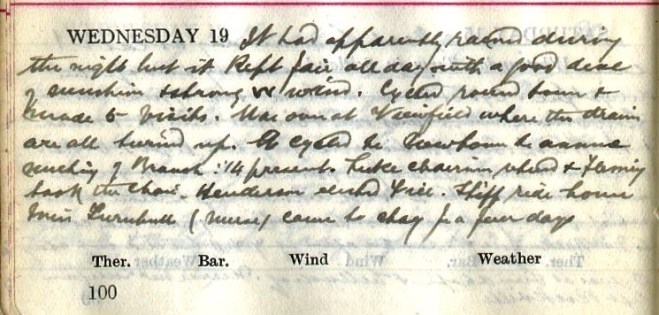 WEDNESDAY 19 It had apparently rained during
the night but it kept fair all day with a good deal
of sunshine & strong W wind. Cycled round town &
made 5 visits. Was over at where the drains
are all buried up. Cycled to Newtown to annual
meeting of Branch : 14 present. Luke chairman & Fleming
took the chair. Henderson elected Stiff ride home
Miss Turnbull (nurse) came to stay for a few days
Ther. Bar. Wind Weather
100